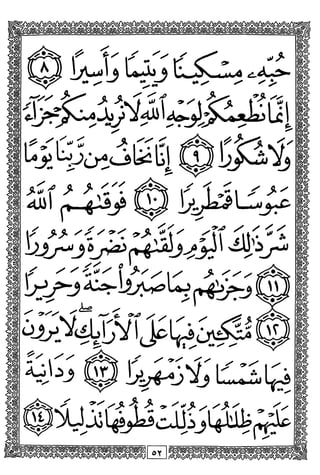 حُبِّهِۦ مِسْكِينًا وَيَتِيمًا وَأَسِيرًا ٨
إِنَّمَا نُطْعِمُكُمْ لِوَجْهِ ٱللَّهِ لَا نُرِيدُ مِنكُمْ جَزَآءً
وَلَا شُكُورًا ٩ إِنَّا نَخَافُ مِن رَّبِّنَا يَوْمًا
عَبُوسًا قَمْطَرِيرًا ١٠ فَوَقَىٰهُمُ ٱللَّهُ
شَرَّ ذَٰلِكَ ٱلْيَوْمِ وَلَقَّىٰهُمْ نَضْرَةً وَسُرُورًا
١١ وَجَزَىٰهُم بِمَا صَبَرُوا۟ جَنَّةً وَحَرِيرًا
١٢ مُّتَّكِـِٔينَ فِيهَا عَلَى ٱلْأَرَآئِكِ ۖ لَا يَرَوْنَ
فِيهَا شَمْسًا وَلَا زَمْهَرِيرًا ١٣ وَدَانِيَةً
عَلَيْهِمْ ظِلَـٰلُهَا وَذُلِّلَتْ قُطُوفُهَا تَذْلِيلًا ١٤
٥٢